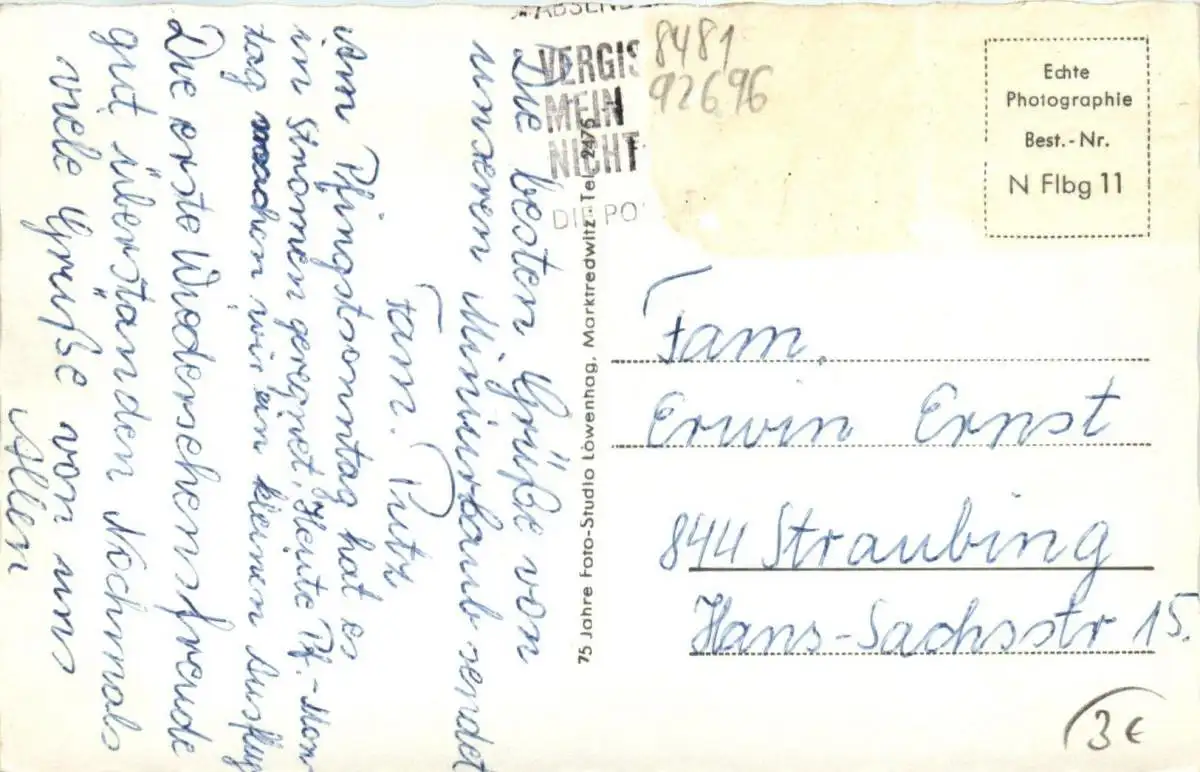 Die besten Grüße von
unseren Miniurlaub sendet
Fam. Putz
Am Pfingstsonntag hat es
in Strömen geregnet, Heute Pf.-Mon-
tag machen wir ein kleinen Ausflug
Die erste Wiedersehensfreude
gut überstanden Nochmals
viele Grüße von uns
Allen
ABSENDE
VERGIS
MEIN
NICHT
DIE PO
8481
92696
75 Jahre Foto-Studio Löwenhag, Marktredwitz · Tel. 2475
Echte
Photographie
Best.-Nr.
N Flbg 11
Fam.
Erwin Ernst
844 Straubing
Hans-Sachsstr 15.
3 €